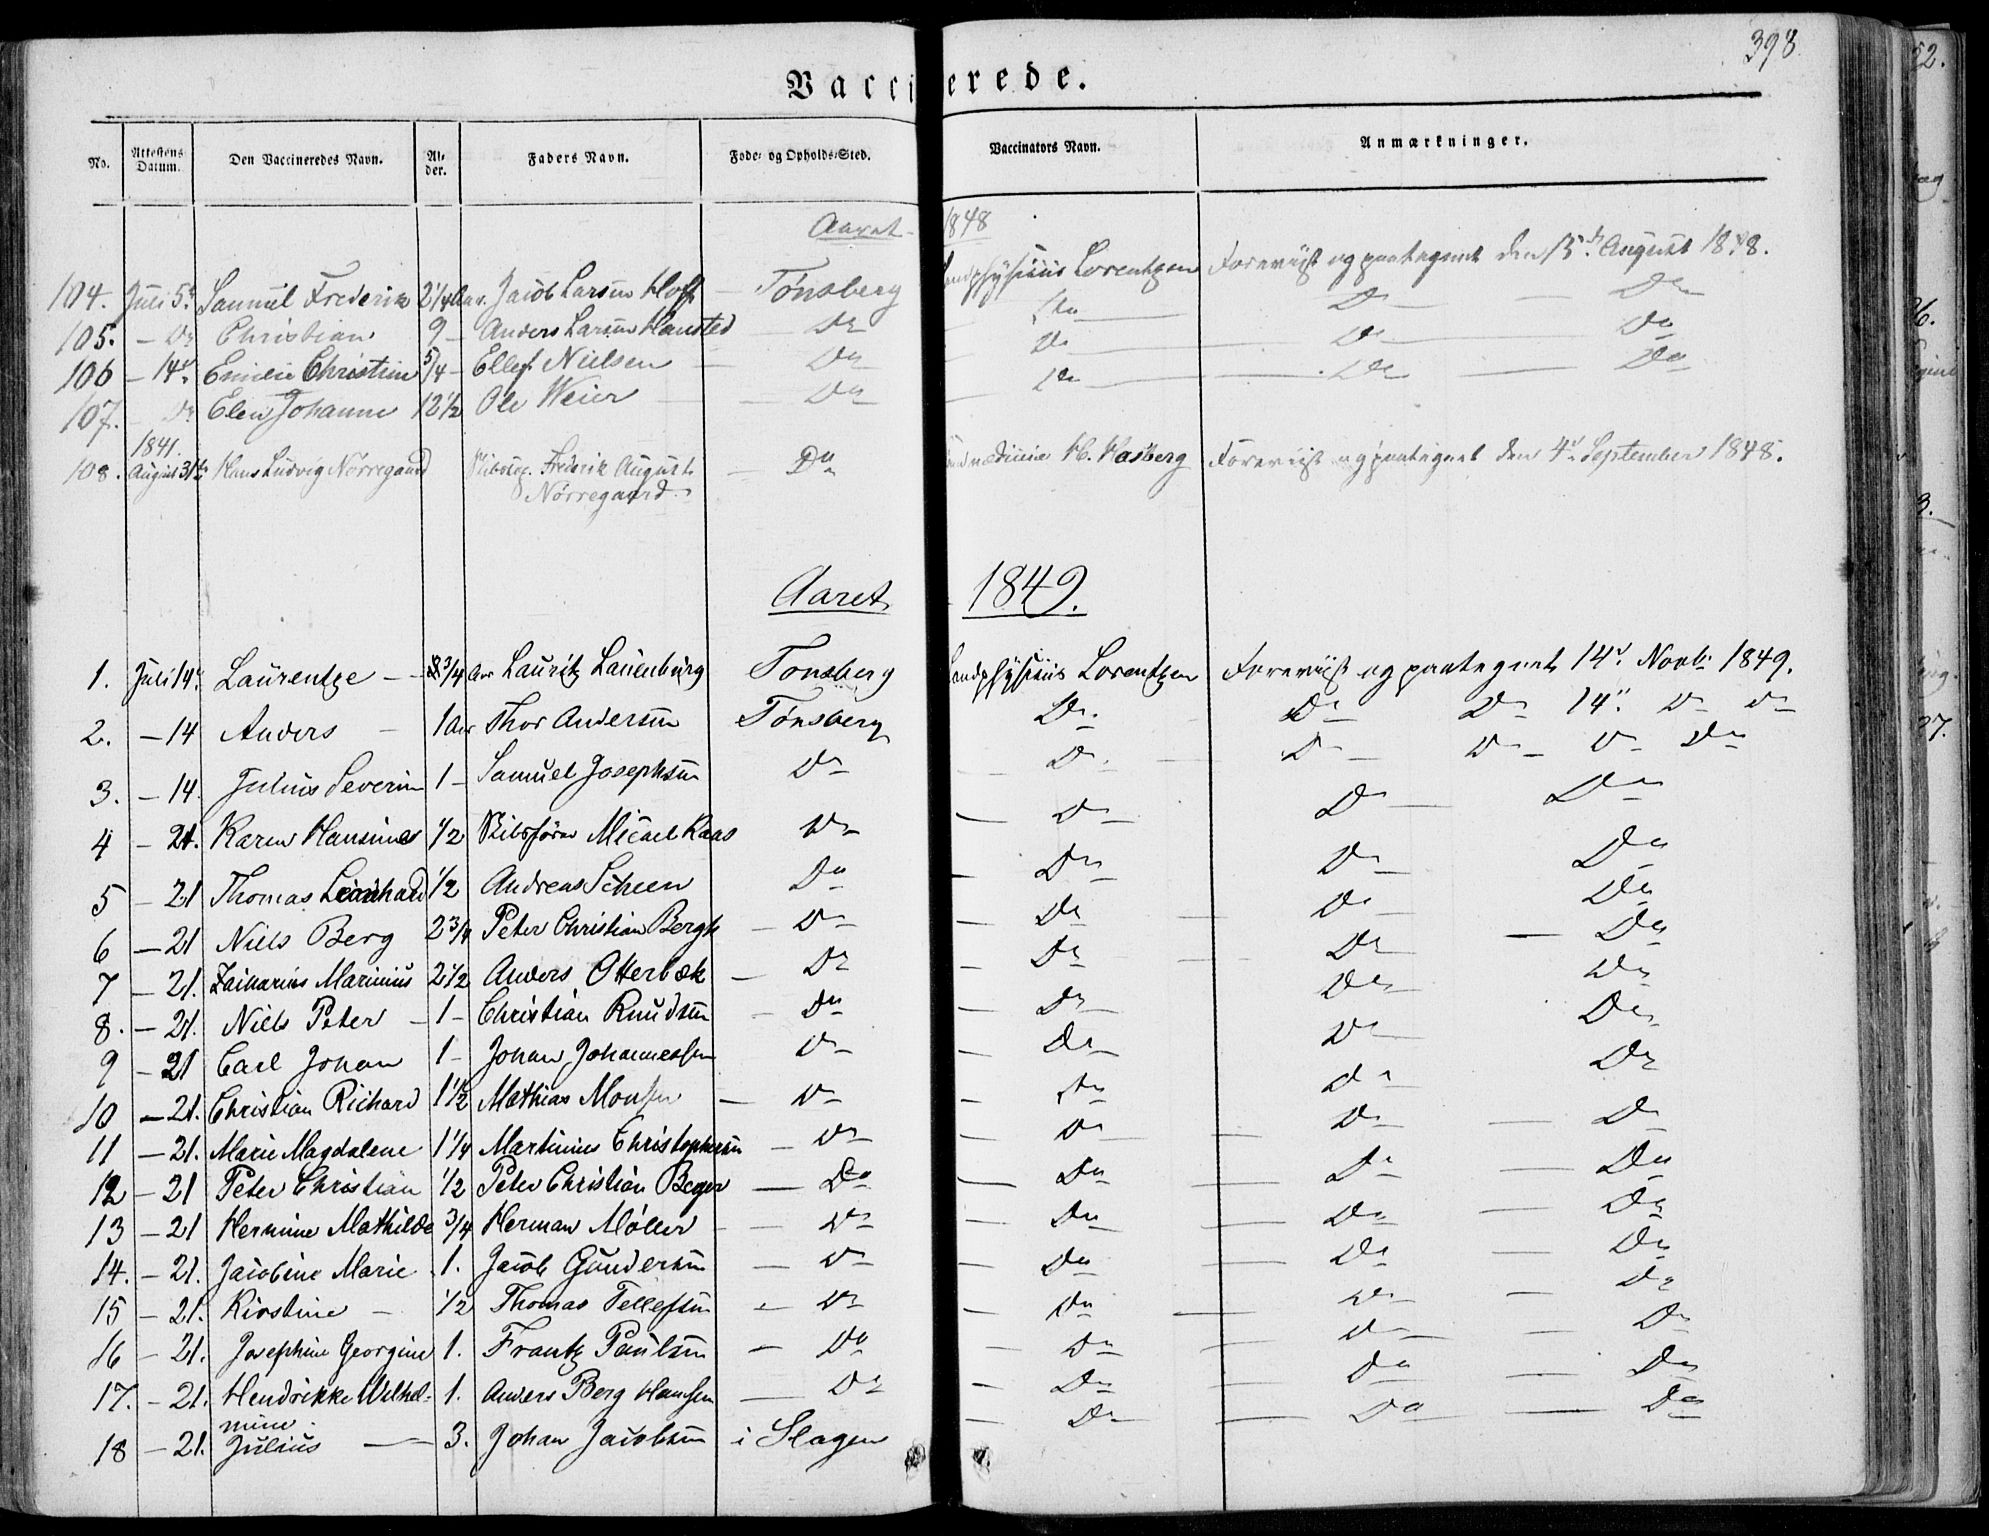 398
Vaccinerede.
No. Attestens Datum. Den Vaccineredes Navn. Alder. Faders Navn. Føde- og Opholds-Sted. Vaccinators Navn. Anmærkninger.
Aaret 1848
104. Juli 5te Samuel Frederik 2 1/4 Aar. Jacob Larsen Hoff — Tönsberg Landphysicus Lorentzen Foreviist og paategnet den 15de August 1848.
105. — Do Christian 9 — Anders Larsen Hansted — Do Do Do Do
106 — 14de Emilie Christine 5/4 — Ellef Nielsen — Do Do Do Do
107. Do Elen Johanne 12 1/2 Ole Weier — Do Do Do Do
1841.
108. August 31te Hans Ludvig Nørregaard Frederik August — Do H. Hasberg Foreviist og paategnet den 4de September 1848.
Nørregaard.
Aaret 1849.
1. Juli 14de Laurentze — 3/4 Aar Lauritz Lauenburg Tonsberg Landphysicus Lorentzen Foreviist og paategnet 14de Novb. 1849.
2. — 14 Anders — 1 Aar Thor Andersen Tönsberg Do. Do Do 14de Do Do
3. — 14. Julius Severin 1 — Samuel Josephsen Do Do. Do Do Do Do
4 — 21. Karen Hansine 1/2 Skibsfører Micael Kaas Do — Do Do Do
5 — 21 Thomas Leonhard 1/2 Andreas Scheen Do — Do Do Do
6 — 21 Niels Berg 2 3/4 Peter Christian Bergh — Do — Do Do Do
7 — 21. Zacharias Marinius 2 1/2 Anders Otterbæk — Do — Do Do Do
8. — 21. Niels Peter — 1 — Christian Knudsen — Do — Do Do Do
9 — 21 Carl Johan 1 — Johan Johannessen Do — Do Do Do
10 — 21. Christian Richard 1 1/2 Mathias Monsen — Do — Do Do Do
11 — 21. Marie Magdalene 1 1/4 Martinius Christophersen — Do — Do Do Do
12 — 21 Peter Christian 1/2 Peter Christian Beger — Do — Do Do Do
13 — 21 Hermine Mathilde 3/4 Herman Møller — Do — Do Do Do
14. — 21. Jacobine Marie 1. Jacob Gundersen — Do — Do Do Do
15 — 21. Kirstine — 1/2 Thomas Tellefsen — Do — Do Do Do
16 — 21. Josephine Georgine 1. Frantz Paulsen — Do — Do Do Do
17. — 21. Hendrikke Wilhel- 1. Anders Berg Hansen — Do — Do Do Do
mine.
18 — 21. Julius — 3. Johan Jacobsen i Slagen — Do Do Do